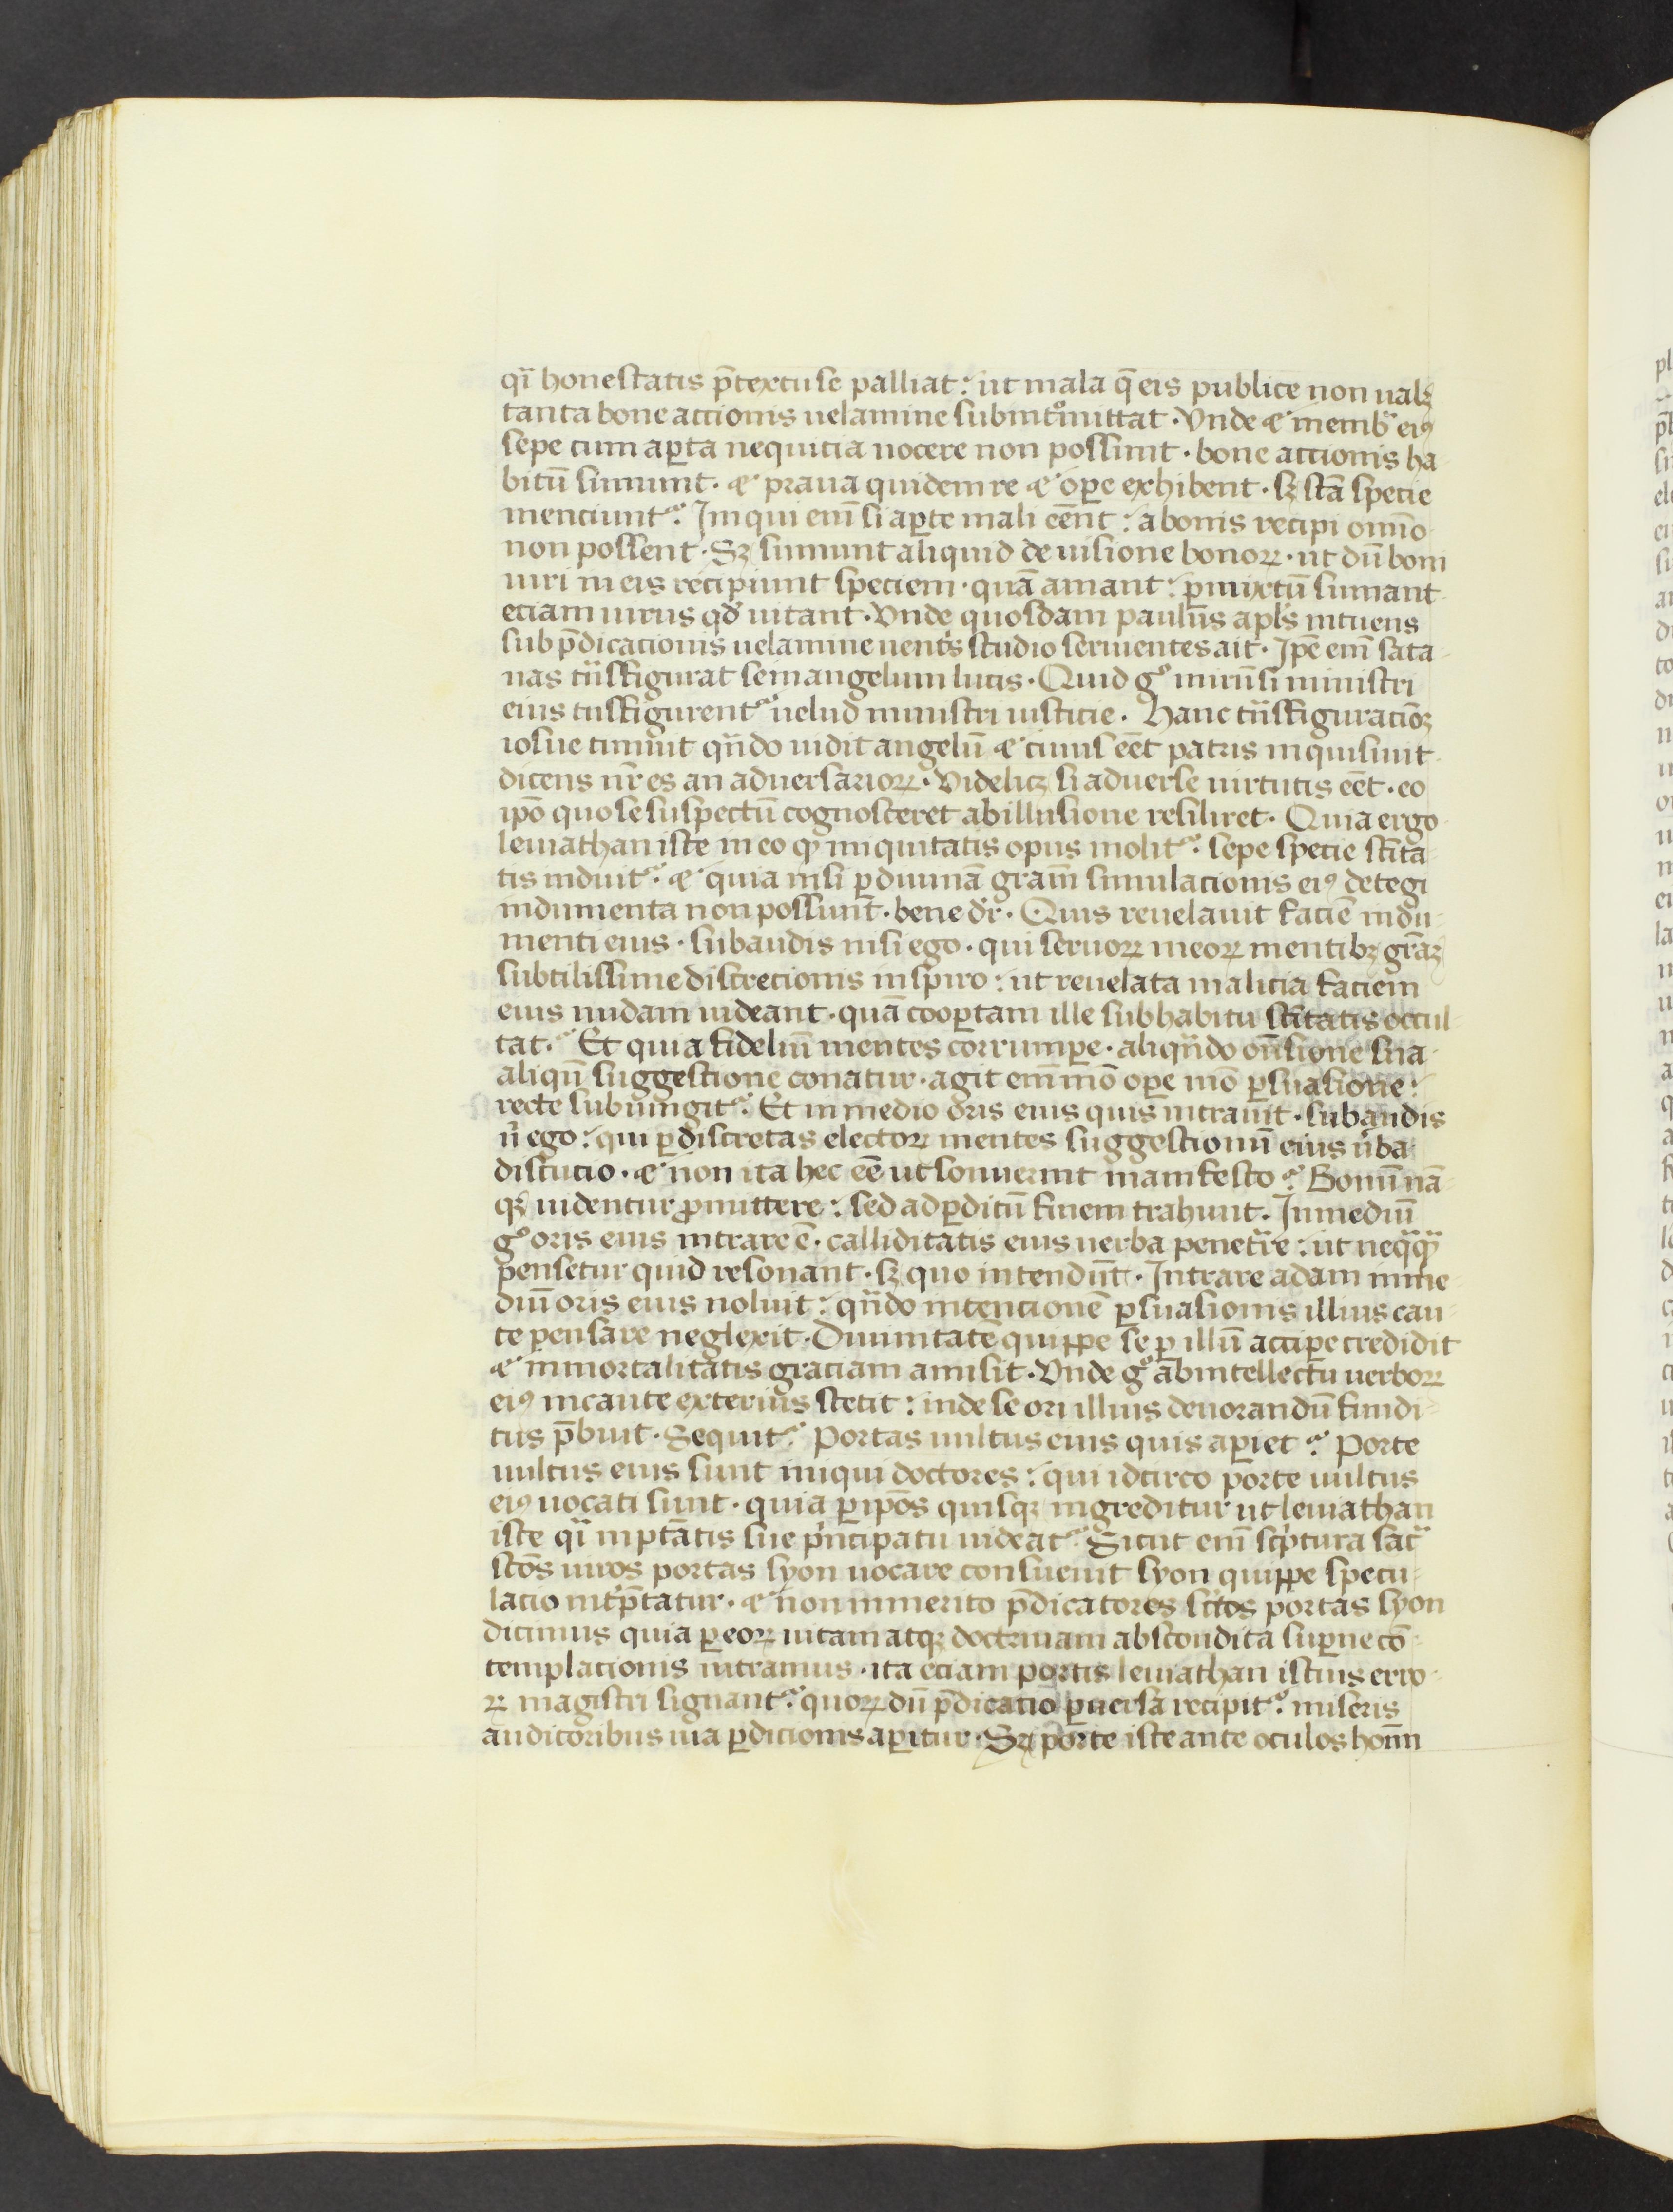 qͣi honestatis p̄textu se palliat: ut mala q̄ eis publice non ualꝫ
tanta bone actionis uelamine submt͛omittat. Vnde ⁊ memb͛ eiꝰ
sepe cum aꝑta nequicia nocere non possunt. bone actionis ha
bitū sumunt. ⁊ praua quidem re ⁊ oꝑe exhibent. sꝫ stā specie
menciunt᷑. Iniqui eni᷑ si aꝑte mali eēnt: a bonis recipi omīo
non possent. Sꝫ sumunt aliquid de uisione bonoꝝ. ut dū boni
uiri in eis recipiunt speciem. quā amant: ꝑmixtū sumant
eciam uirus qd̓ uitant. Vnde quosdam paulus apl̓s intuens
sub p̄dicacionis uelamine uentͥs studio seruientes ait. Ip̄e eni᷑ sata
nas tͣnsfigurat se in angelum lucis. Quid gͦ mirū si ministri
eius tͣnsfigurent᷑ uelud ministri iusticie. Hanc tͣnsfiguracōꝫ
iosue timuit qͣndo uidit angelū ⁊ cuius eēt patris inquisiuit
dicens nr̄ es an aduersarioꝝ. Videlicꝫ si aduerse uirtutis eēt. eo
ip̄o quo se suspectū cognosceret ab illusione resiliret. Quia ergo
leuiathan iste in eo qͦ iniquitatis opus molit᷑. sepe specie sc̄ita
tis induit᷑. ⁊ quia nisi ꝑ diuinā gr̄am simulacionis eiꝰ detegi
indumenta non possunt. bene dr̄. Quis reuelauit faciē indu
menti eius. subaudis nisi ego. qui seruoꝝ meoꝝ mentibꝫ gr̄aꝫ
subtilissime discrecionis inspiro: ut reuelata malicia faciem
eius nudam uideant. quā cooꝑtam ille sub habitu sc̄itatis occul
tat. Et quia fideliū mentes corrumꝑe. aliqͣndo on̄sione sua
aliqū suggestione conatur. agit eni᷑ mō oꝑe mō ꝑsuasione:
recte subiungit᷑. Et in medio oris eius quis intrauit. subaudis
nͥ ego: qui ꝑ discretas electoꝝ mentes suggestionū eius ūba
discucio. ⁊ non ita hec eē ut sonuerint manifesto. Bonū nā
qꝫ uidentur ꝓmittere: sed ad ꝑditū finem trahunt. In mediū
gͦ oris eius intrare ē. calliditatis eius uerba penetͣre: ut neqͣqͣ
pensetur quid resonant. sꝫ quo intendūt. Intrare adam in me
diū oris eius noluit: qͣndo intencionē ꝑsuasionis illius cau
te pensare neglexit. Diuinitatē quippe se ꝑ illū acciꝑe credidit
⁊ inmortalitatis graciam amisit. Vnde gͦ ab intellectu uerboꝝ
eiꝰ incaute exterius stetit: inde se ori illius deuorandū fundi
tus p̄buit. Sequit᷑ Portas uultus eius quis aꝑiet. Porte
uultus eius sunt iniqui doctores: qui idcirco porte uultus
eiꝰ uocati sunt. quia ꝑ ip̄os quisqꝫ ingreditur ut leuiathan
iste qͣi in ptātis sue pͥncipatu uideat᷑ Sicut eni᷑ scͥptura sacͣ
sc̄os uiros portas syon uocare consueuit syon quippe specu
lacio intp̄tatur. ⁊ non inmerito p̄dicatores sc̄tos portas syon
dicimus quia ꝑ eoꝝ uitam atqꝫ doctrinam abscondita suꝑne cō
templacionis intramus. ita eciam portis leuiathan istius erro
ꝝ magistri signant᷑. quoꝝ dū p̄dicatio ꝑuersa recipit᷑. miseris
auditoribus uia ꝑdicionis aꝑitur. Sꝫ porte iste ante oculos hoīn